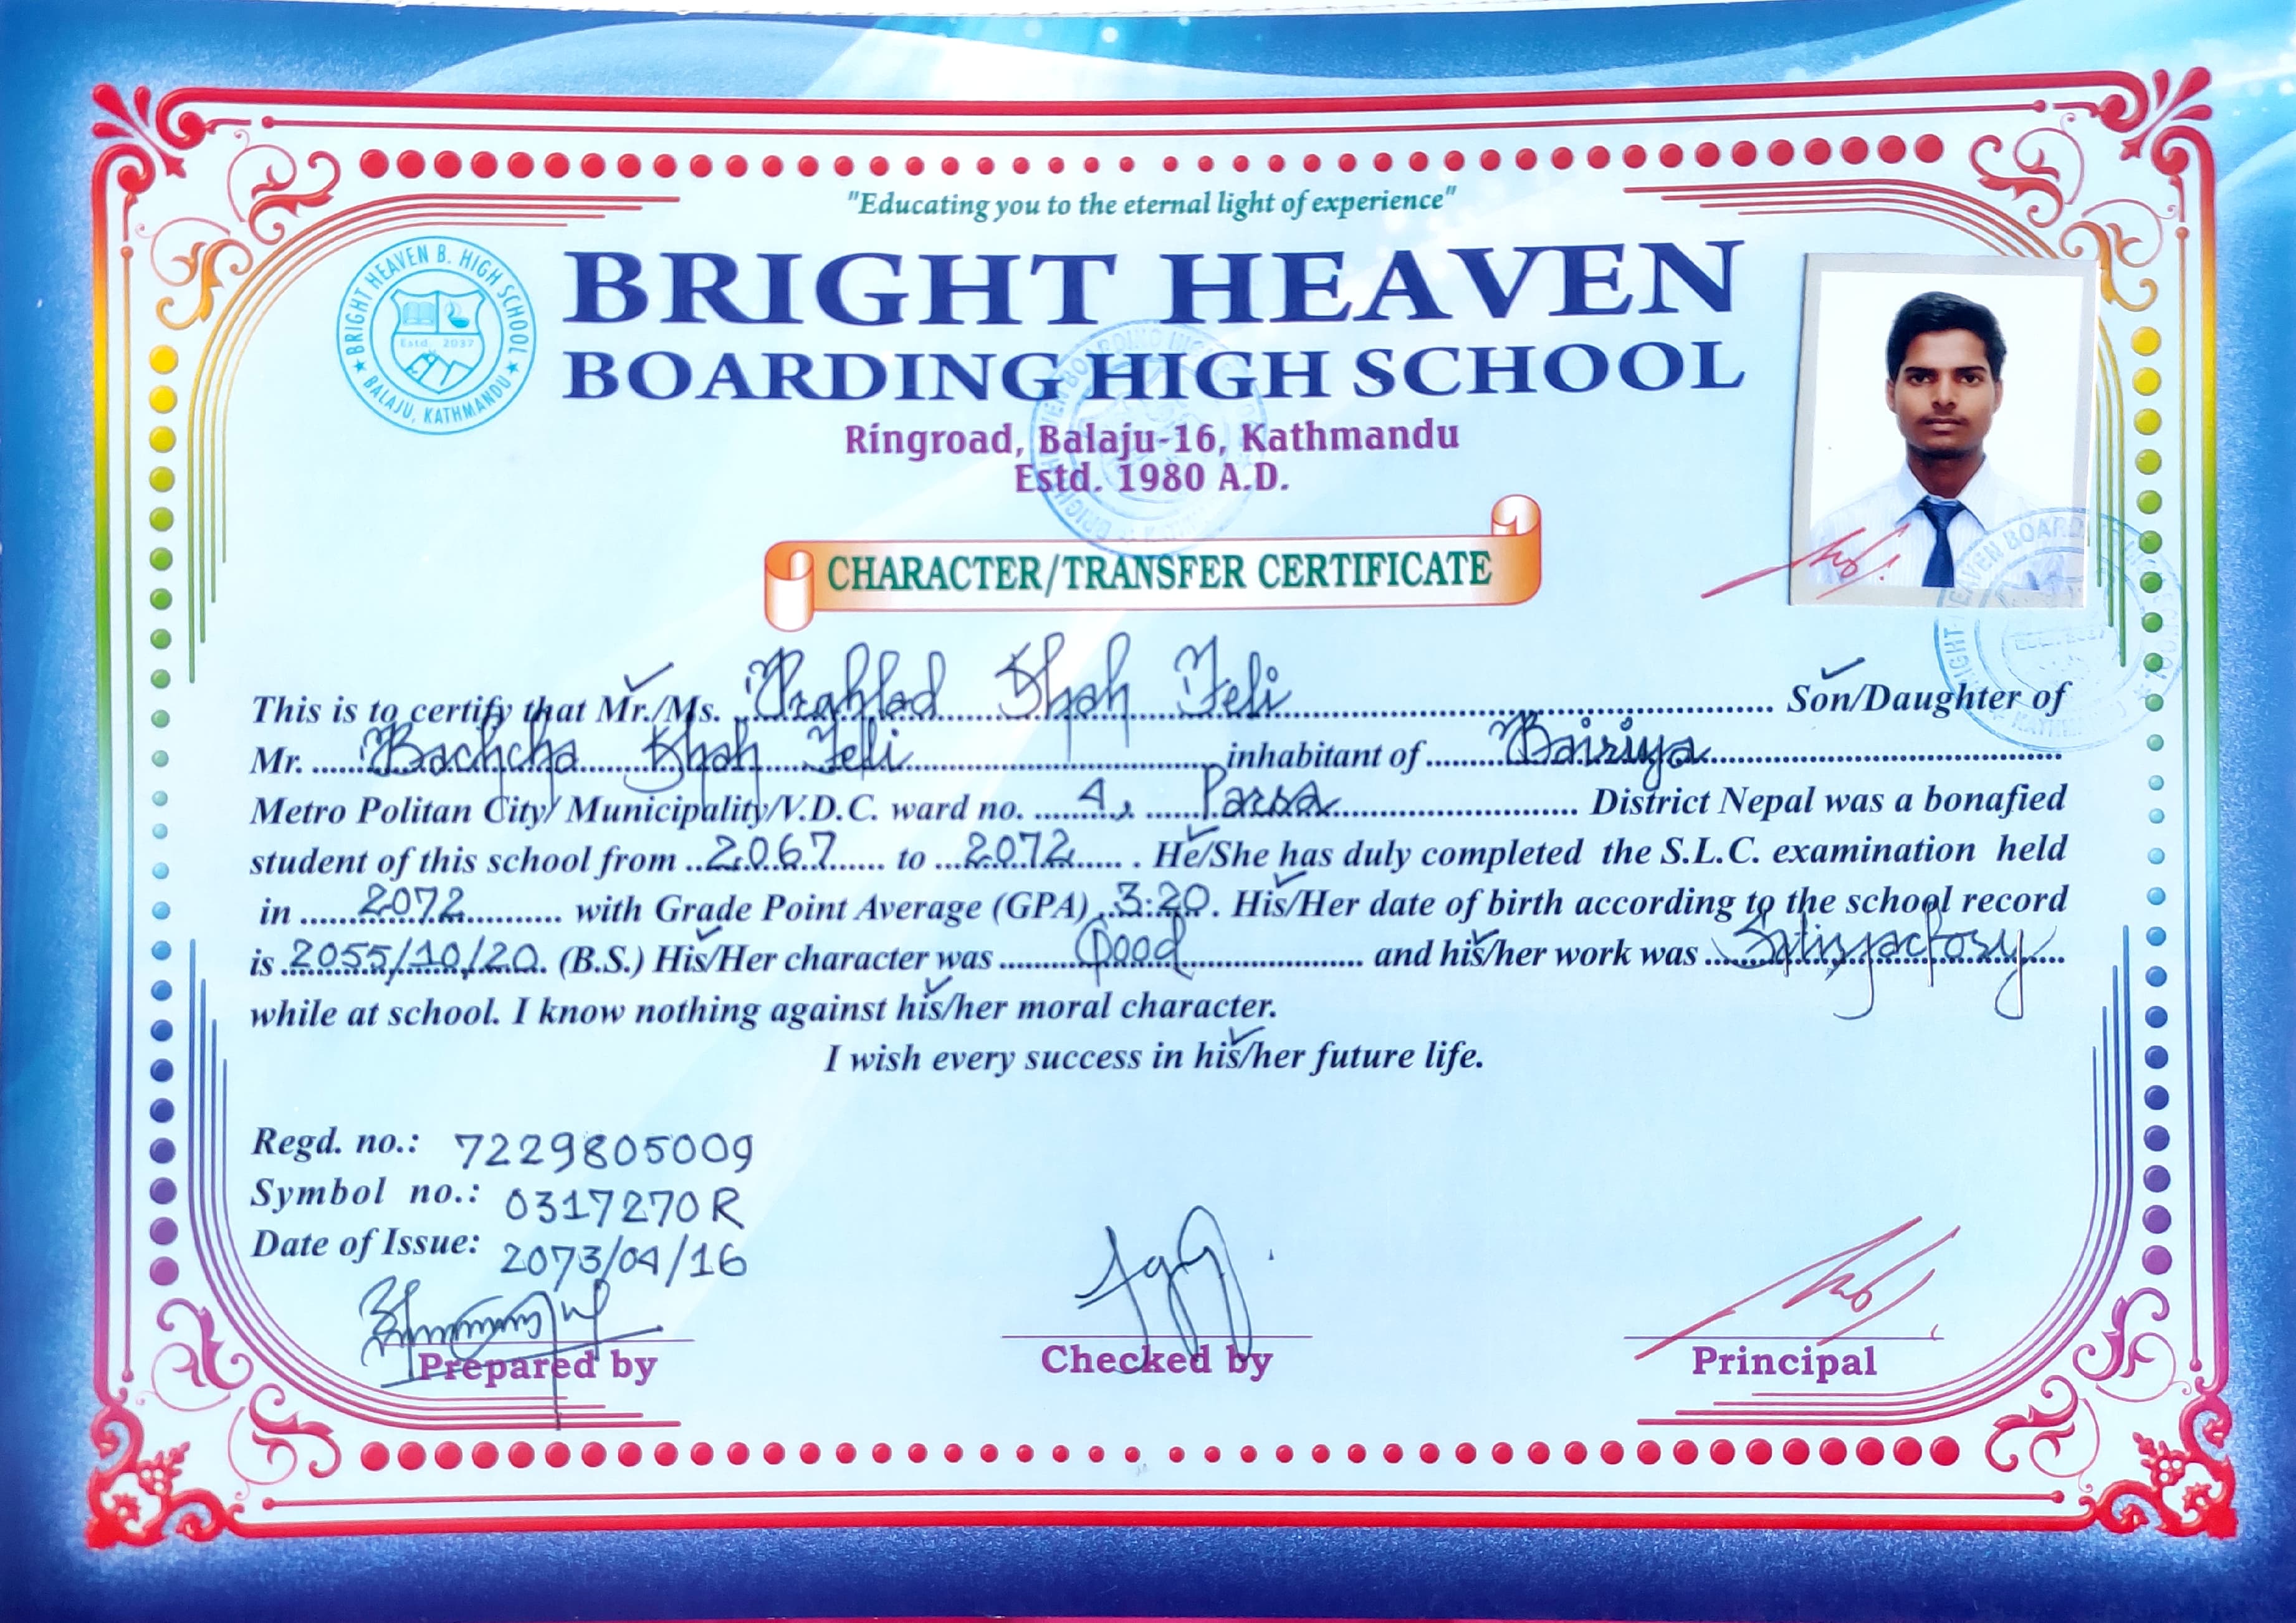 "Educating you to the eternal light of experience"
BRIGHT HEAVEN B. HIGH SCHOOL
Estd. 2037
BALAJU, KATHMANDU
BRIGHT HEAVEN
BOARDING HIGH SCHOOL
Ringroad, Balaju-16, Kathmandu
Estd. 1980 A.D.
CHARACTER/TRANSFER CERTIFICATE
This is to certify that Mr./Ms. Prahlad Shah Teli Son/Daughter of
Mr. Bachcha Shah Teli inhabitant of Bairiya
Metro Politan City/ Municipality/V.D.C. ward no. 4, Parsa District Nepal was a bonafied
student of this school from 2067 to 2072. He/She has duly completed the S.L.C. examination held
in 2072 with Grade Point Average (GPA) 3.20. His/Her date of birth according to the school record
is 2055/10/20. (B.S.) His/Her character was Good and his/her work was Satisfactory
while at school. I know nothing against his/her moral character.
I wish every success in his/her future life.
Regd. no.: 7229805009
Symbol no.: 0317270R
Date of Issue: 2073/04/16
Prepared by
Checked by
Principal